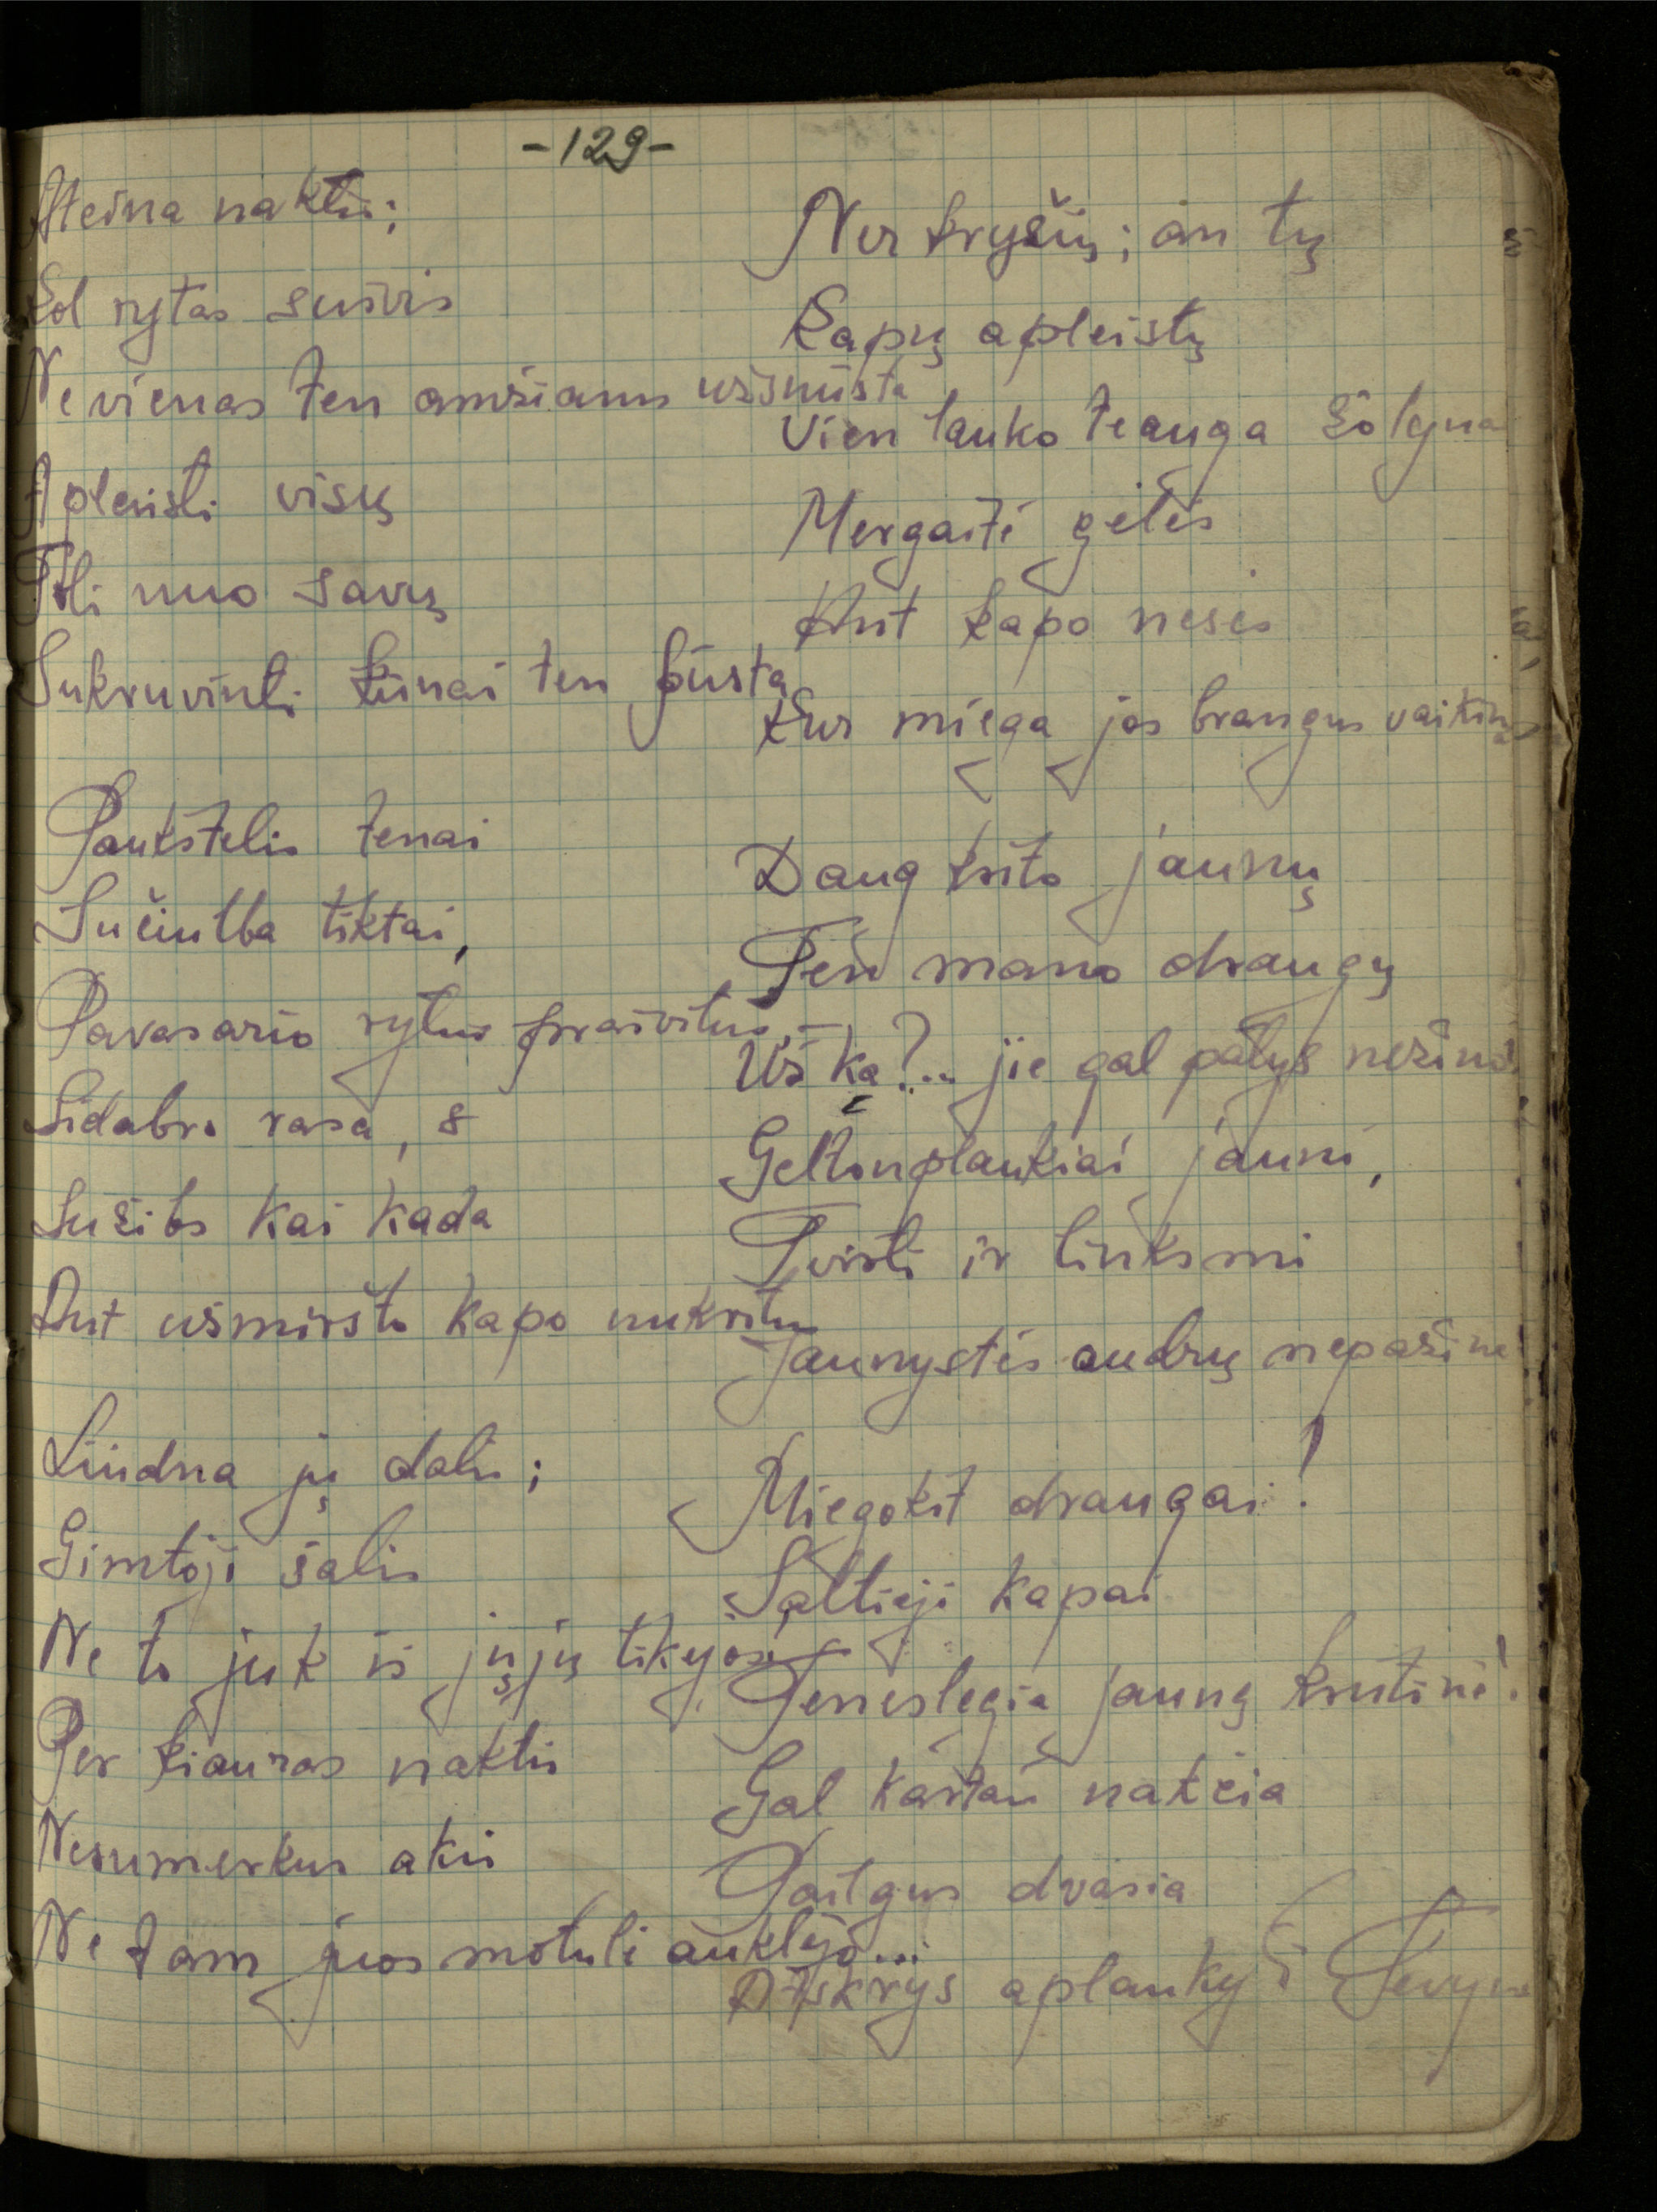 -129-
Ateina naktis;
Kol rytas sušvis
Ne vienas ten amžiams užsnūsta
Apleisti visų
Toli nuo savų
Sukruvinti kūnai ten pūsta
Paukštelis tenai
Sučiulba tiktai,
Pavasario rytui prašvitus,—
Sidabro rasa,
Sužibs kai kada
Ant užmiršto kapo nukritus
Liūdna jų dalis;
Gimtoji šalis
Ne to juk iš jųjų tikėjosi
Per kiauras naktis
Nesumerkus akis
Ne tam juos motulė auklėjo...
Ner kryžių; an tų
Kapų apleistų
Vien lauko teauga žolyna
Mergaitė gėlės
Ant kapo nesės
Kur miega jos brangus vaikinas
Daug krito jaunų
Ten mano draugų
Už ką?.. jie gal patys nežino
Geltonplaukiai jauni,
Tvirti ir linksmi
Jaunystės audrų nepažino
Miegokit draugai!
Šaltieji kapai
Teneslegia jauną krutinę!
Gal kartais nakčia
Pailgus dvasia
Atskrys aplankyt Tėvynę